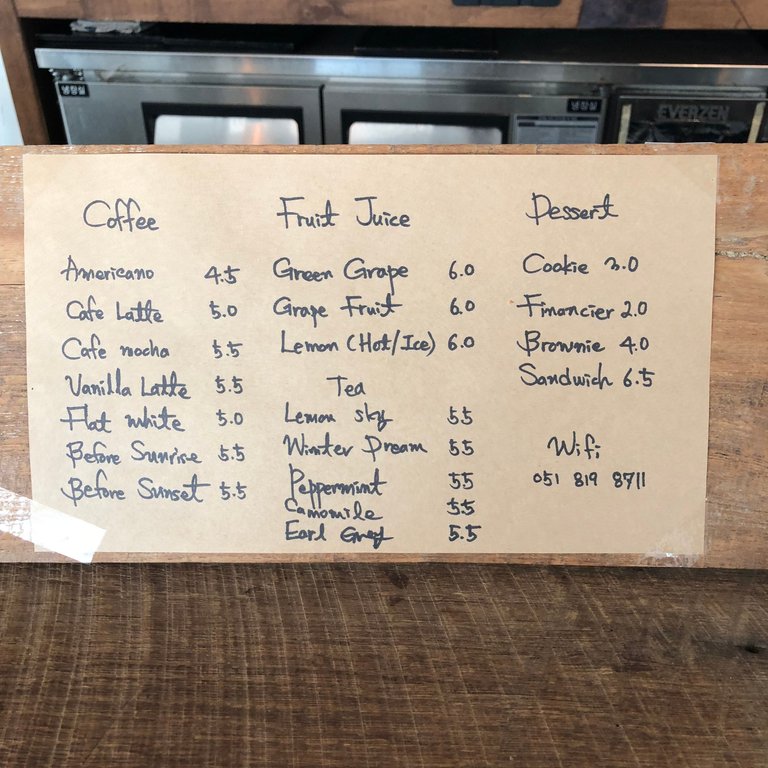 냉장실
냉장실
EVERZEN
Coffee
Americano 4.5
Cafe Latte 5.0
Cafe mocha 5.5
Vanilla Latte 5.5
Flat white 5.0
Before Sunrise 5.5
Before Sunset 5.5
Fruit Juice
Green Grape 6.0
Grape Fruit 6.0
Lemon (Hot/Ice) 6.0
Tea
Lemon sky 5.5
Winter Dream 5.5
Peppermint 5.5
Camomile 5.5
Earl Grey 5.5
Dessert
Cookie 3.0
Financier 2.0
Brownie 4.0
Sandwich 6.5
Wifi
051 819 8711